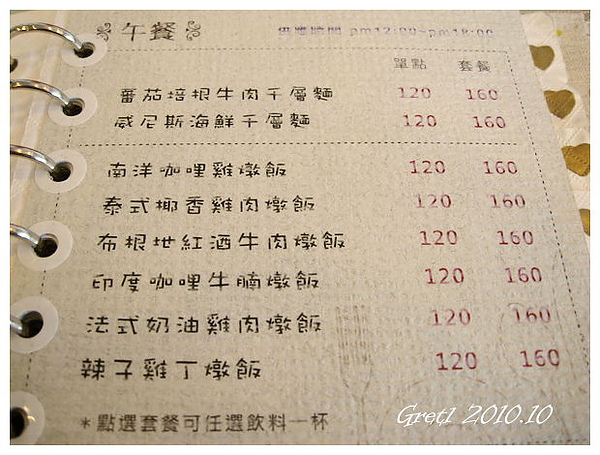 午餐 供應時間 pm12:00~pm18:00
單點 套餐
番茄培根牛肉千層麵 120 160
威尼斯海鮮千層麵 120 160
南洋咖哩雞燉飯 120 160
泰式椰香雞肉燉飯 120 160
布根地紅酒牛肉燉飯 120 160
印度咖哩牛腩燉飯 120 160
法式奶油雞肉燉飯 120 160
辣子雞丁燉飯 120 160
*點選套餐可任選飲料一杯
Gretl 2010.10